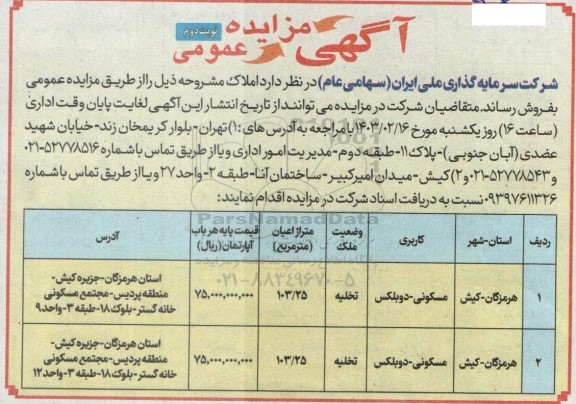 آگهی مزایده عمومی
نوبت دوم
شرکت سرمایه گذاری ملی ایران (سهامی عام) در نظر دارد املاک مشروحه ذیل را از طریق مزایده عمومی
بفروش رساند. متقاضیان شرکت در مزایده می توانند از تاریخ انتشار این آگهی لغایت پایان وقت اداری
(ساعت ۱۶) روز یکشنبه مورخ ۱۴۰۳/۰۲/۱۶ با مراجعه به آدرس های: ۱) تهران-بلوار کریمخان زند-خیابان شهید
عضدی (آبان جنوبی)-پلاک ۱۱-طبقه دوم-مدیریت امور اداری و یا از طریق تماس با شماره ۵۲۷۷۸۵۱۶-۰۲۱
و ۵۲۷۷۸۵۴۳-۰۲۱ و ۲) کیش-میدان امیرکبیر-ساختمان آنا-طبقه ۲-واحد ۲۷ و یا از طریق تماس با شماره
۰۹۳۹۷۶۱۱۳۲۶ نسبت به دریافت اسناد شرکت در مزایده اقدام نمایند:
ردیف استان-شهر کاربری وضعیت ملک متراژ اعیان (مترمربع) قیمت پایه هر باب آپارتمان (ریال) آدرس
۱ هرمزگان-کیش مسکونی-دوبلکس تخلیه ۱۰۳/۲۵ ۷۵,۰۰۰,۰۰۰,۰۰۰ استان هرمزگان-جزیره کیش-
منطقه پردیس-مجتمع مسکونی
خانه گستر-بلوک ۱۸-طبقه ۳-واحد ۹
۲ هرمزگان-کیش مسکونی-دوبلکس تخلیه ۱۰۳/۲۵ ۷۵,۰۰۰,۰۰۰,۰۰۰ استان هرمزگان-جزیره کیش-
منطقه پردیس-مجتمع مسکونی
خانه گستر-بلوک ۱۸-طبقه ۳-واحد ۱۲
ParsNamadData
۰۲۱-۸۸۳۴۹۶۷۰-۵